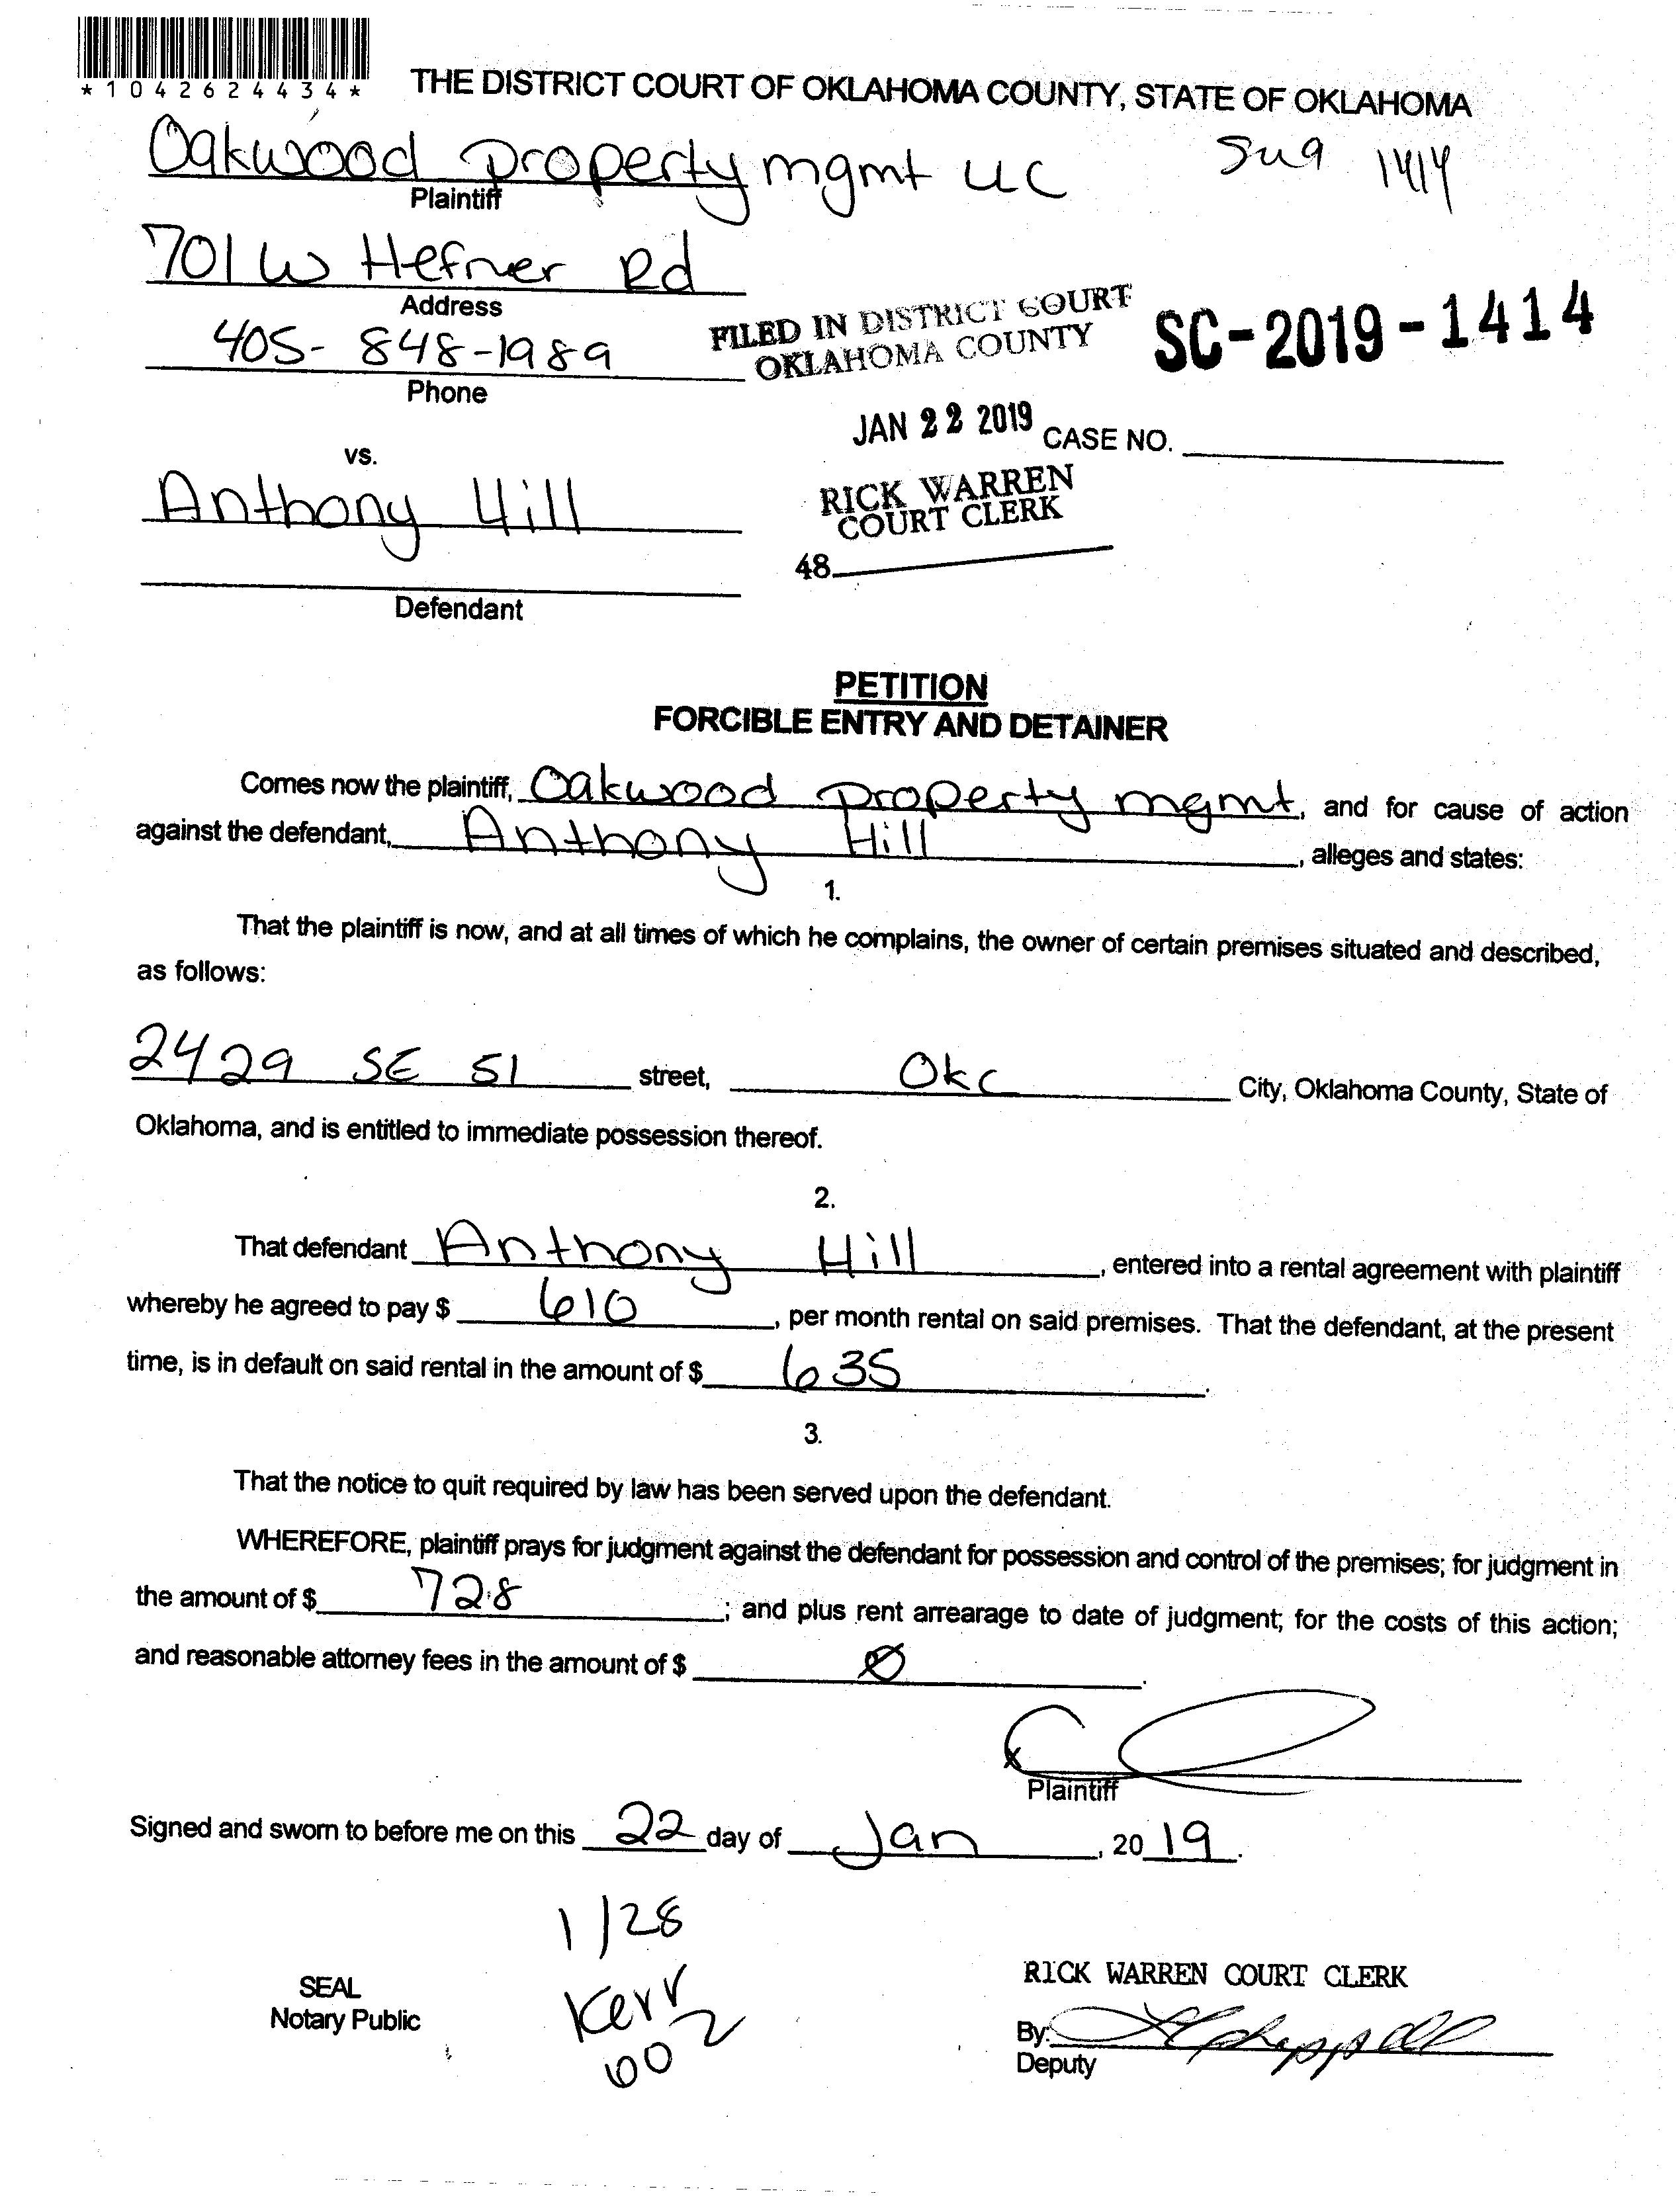 *1042624434*
THE DISTRICT COURT OF OKLAHOMA COUNTY, STATE OF OKLAHOMA
Oakwood property mgmt LLC
1414
Plaintiff
701 W Hefner Rd
Address
405-848-1989
Phone
FILED IN DISTRICT COURT
OKLAHOMA COUNTY
SC-2019-1414
JAN 22 2019
CASE NO.
vs.
Anthony Hill
RICK WARREN
COURT CLERK
48
Defendant
PETITION
FORCIBLE ENTRY AND DETAINER
Comes now the plaintiff, Oakwood property mgmt, and for cause of action
against the defendant, Anthony Hill, alleges and states:
1.
That the plaintiff is now, and at all times of which he complains, the owner of certain premises situated and described,
as follows:
2429 SE 51 street, Okc City, Oklahoma County, State of
Oklahoma, and is entitled to immediate possession thereof.
2.
That defendant Anthony Hill, entered into a rental agreement with plaintiff
whereby he agreed to pay $ 610, per month rental on said premises. That the defendant, at the present
time, is in default on said rental in the amount of $ 635.
3.
That the notice to quit required by law has been served upon the defendant.
WHEREFORE, plaintiff prays for judgment against the defendant for possession and control of the premises; for judgment in
the amount of $ 728; and plus rent arrearage to date of judgment; for the costs of this action;
and reasonable attorney fees in the amount of $ Ø.
x
Plaintiff
Signed and sworn to before me on this 22 day of Jan, 20 19.
1/28
SEAL
Notary Public
Kerr
602
RICK WARREN COURT CLERK
By:
Deputy